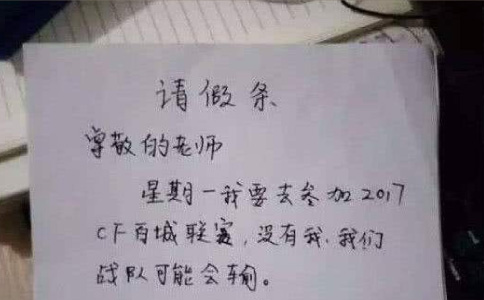 请假条
尊敬的老师
星期一我要去参加2017
CF百城联赛,没有我,我们
战队可能会输。